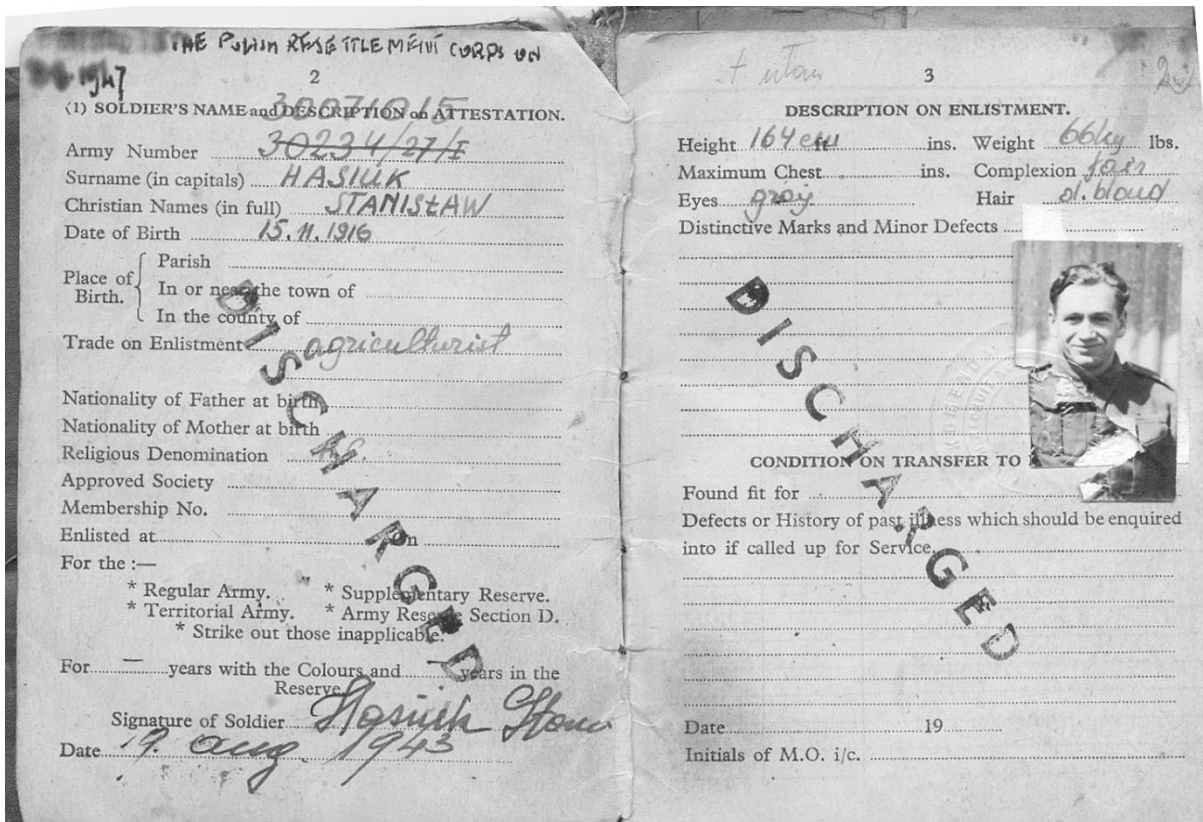 THE POLISH RESETTLEMENT CORPS ON
1947
2
30071015
(1) SOLDIER'S NAME and DESCRIPTION on ATTESTATION.
Army Number 30234/27/I
Surname (in capitals) HASIUK
Christian Names (in full) STANISŁAW
Date of Birth 15.11.1916
Place of Birth.
Parish
In or near the town of
In the county of
Trade on Enlistment agriculturist
Nationality of Father at birth
Nationality of Mother at birth
Religious Denomination
Approved Society
Membership No.
Enlisted at on
For the :—
* Regular Army. * Supplementary Reserve.
* Territorial Army. * Army Reserve Section D.
* Strike out those inapplicable.
For — years with the Colours and — years in the
Reserve
Signature of Soldier Hasiuk Stan
Date 19. aug 1943
DISCHARGED
3
DESCRIPTION ON ENLISTMENT.
Height 164 cm ins. Weight 66kg lbs.
Maximum Chest ins. Complexion fair
Eyes grey Hair bloud
Distinctive Marks and Minor Defects
CONDITION ON TRANSFER TO
Found fit for
Defects or History of past illness which should be enquired
into if called up for Service.
Date 19
Initials of M.O. i/c.
DISCHARGED